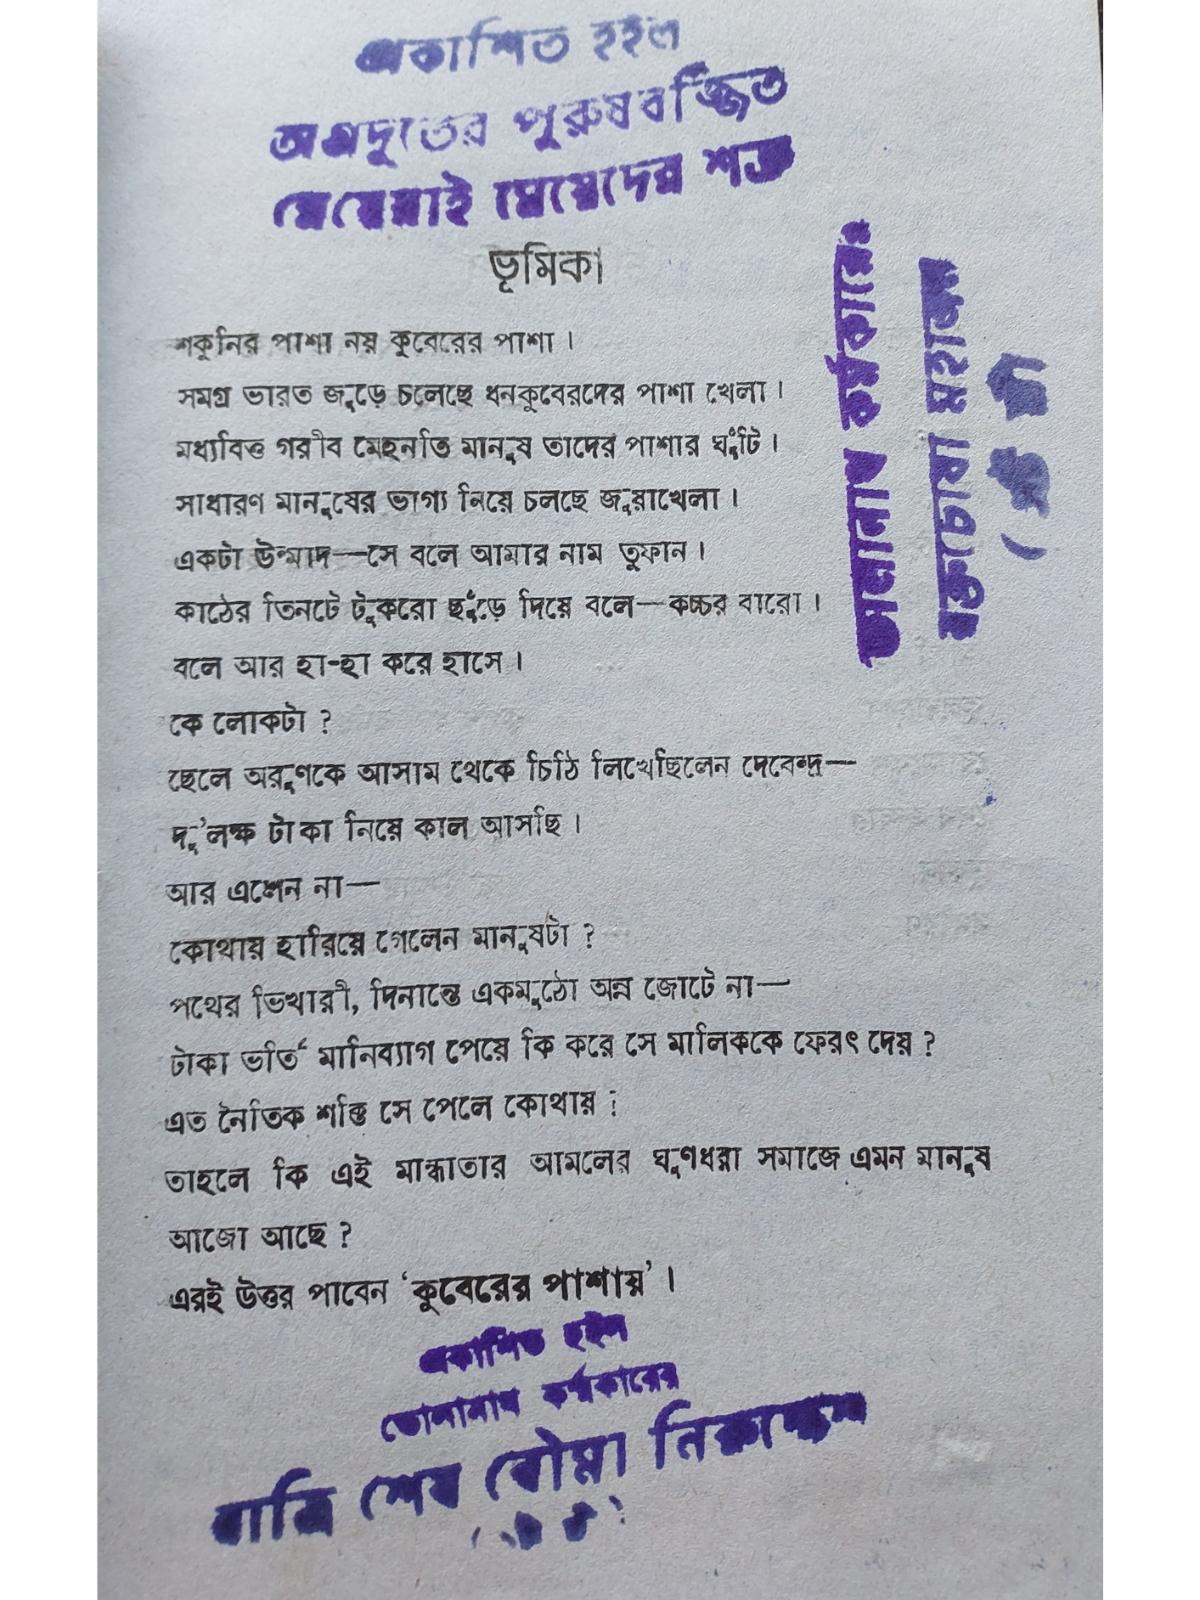 প্রকাশিত হইল
অগ্রদূতের পুরুষবর্জ্জিত
মেয়েরাই মেয়েদের শত্রু
ভূমিকা
শকুনির পাশা নয় কুবেরের পাশা ।
সমগ্র ভারত জুড়ে চলেছে ধনকুবেরদের পাশা খেলা ।
মধ্যবিত্ত গরীব মেহনতি মানুষ তাদের পাশার ঘুঁটি ।
সাধারণ মানুষের ভাগ্য নিয়ে চলছে জুয়াখেলা ।
একটা উন্মাদ—সে বলে আমার নাম তুফান ।
কাঠের তিনটে টুকরো ছুঁড়ে দিয়ে বলে—কচ্চর বারো ।
বলে আর হা-হা করে হাসে ।
কে লোকটা ?
ছেলে অরুণকে আসাম থেকে চিঠি লিখেছিলেন দেবেন্দ্র—
দু'লক্ষ টাকা নিয়ে কাল আসছি ।
আর এলেন না—
কোথায় হারিয়ে গেলেন মানুষটা ?
পথের ভিখারী, দিনান্তে একমুঠো অন্ন জোটে না—
টাকা ভর্তি মানিব্যাগ পেয়ে কি করে সে মালিককে ফেরৎ দেয় ?
এত নৈতিক শক্তি সে পেলে কোথায় ?
তাহলে কি এই মান্ধাতার আমলের ঘুণধরা সমাজে এমন মানুষ
আজো আছে ?
এরই উত্তর পাবেন ‘কুবেরের পাশায়’ ।
প্রকাশিত হইল
ভোলানাথ কর্ম্মকারের
রাত্রি শেষ বৌমা
রক্তচোষা মহাজন